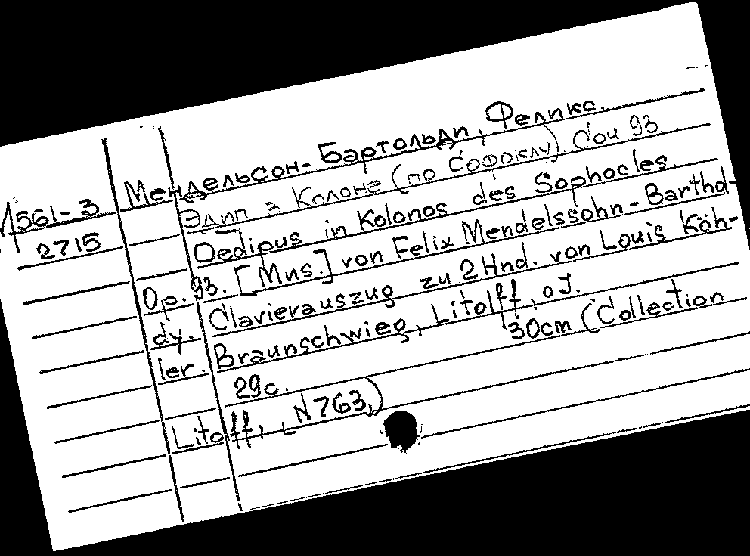 Мендельсон-Бартольди, Феликс.
561-3 Эдип в Колоне (по Софоклу) Соч 93
2715 Oedipus in Kolonos des Sophocles.
Op. 93. [Mus.] von Felix Mendelssohn-Barthol-
dy. Clavierauszug zu 2 Hnd. von Louis Köh-
ler. Braunschwieg, Litolff, o J.
29c. 30cm (Collection
Litolff, N 763,)